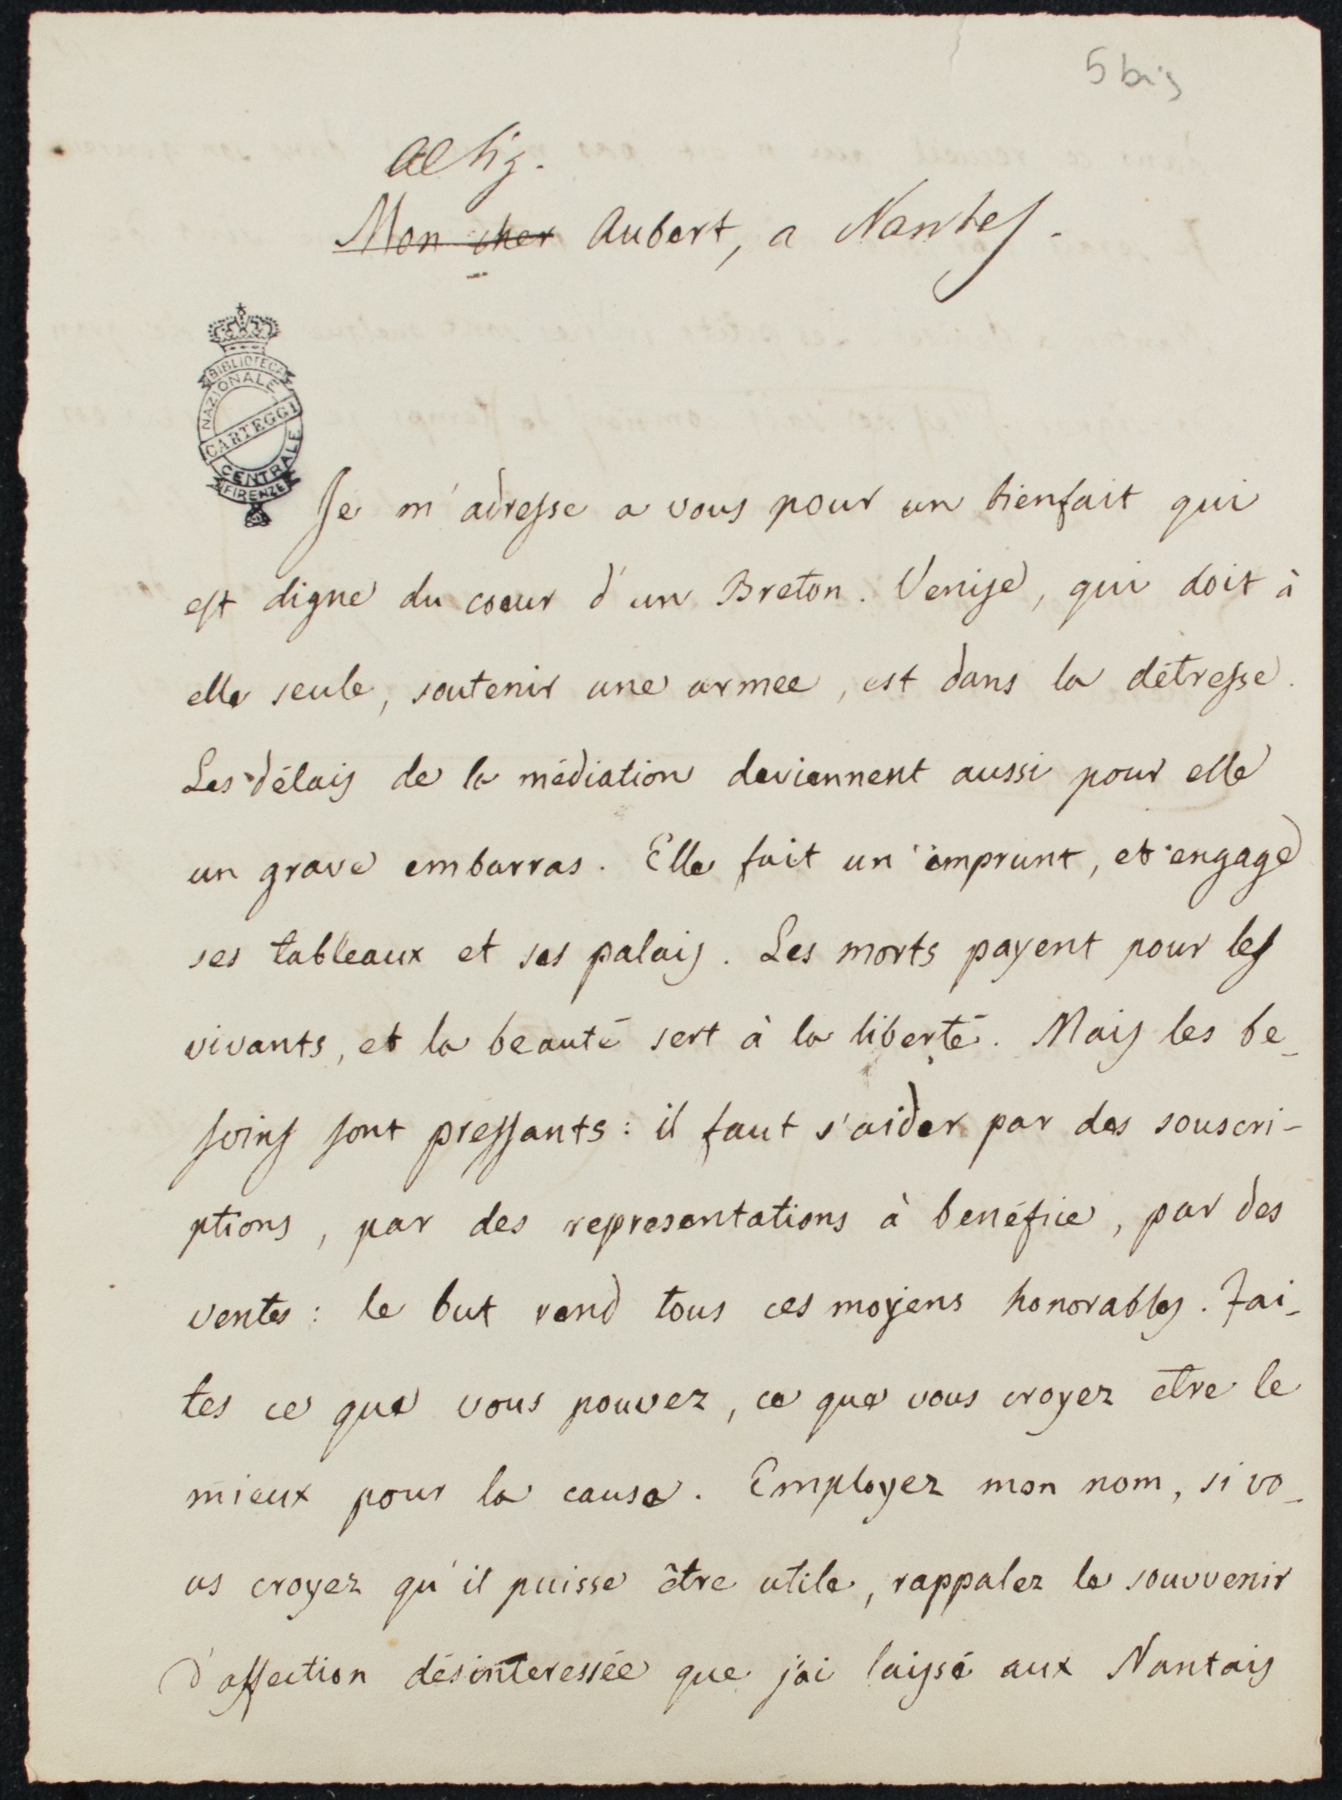 5 bis
Al Sig.
Mon cher Aubert, a Nantes.
BIBLIOTECA
NAZIONALE
CARTEGGI
CENTRALE
FIRENZE
Je m'adresse a vous pour un bienfait qui
est digne du coeur d'un Breton. Venise, qui doit à
elle seule, soutenir une armee, est dans la détresse.
Les délais de la médiation deviennent aussi pour elle
un grave embarras. Elle fait un emprunt, et engage
ses tableaux et ses palais. Les morts payent pour les
vivants, et la beauté sert à la liberté. Mais les be-
soins sont pressants: il faut s'aider par des souscri-
ptions, par des representations à benéfice, par des
ventes: le but rend tous ces moyens honorables. Fai-
tes ce que vous pouvez, ce que vous croyez etre le
mieux pour la cause. Employez mon nom, si vo-
us croyez qu'il puisse être utile, rappelez le souvvenir
d'affection désinteressée que j'ai laissé aux Nantais